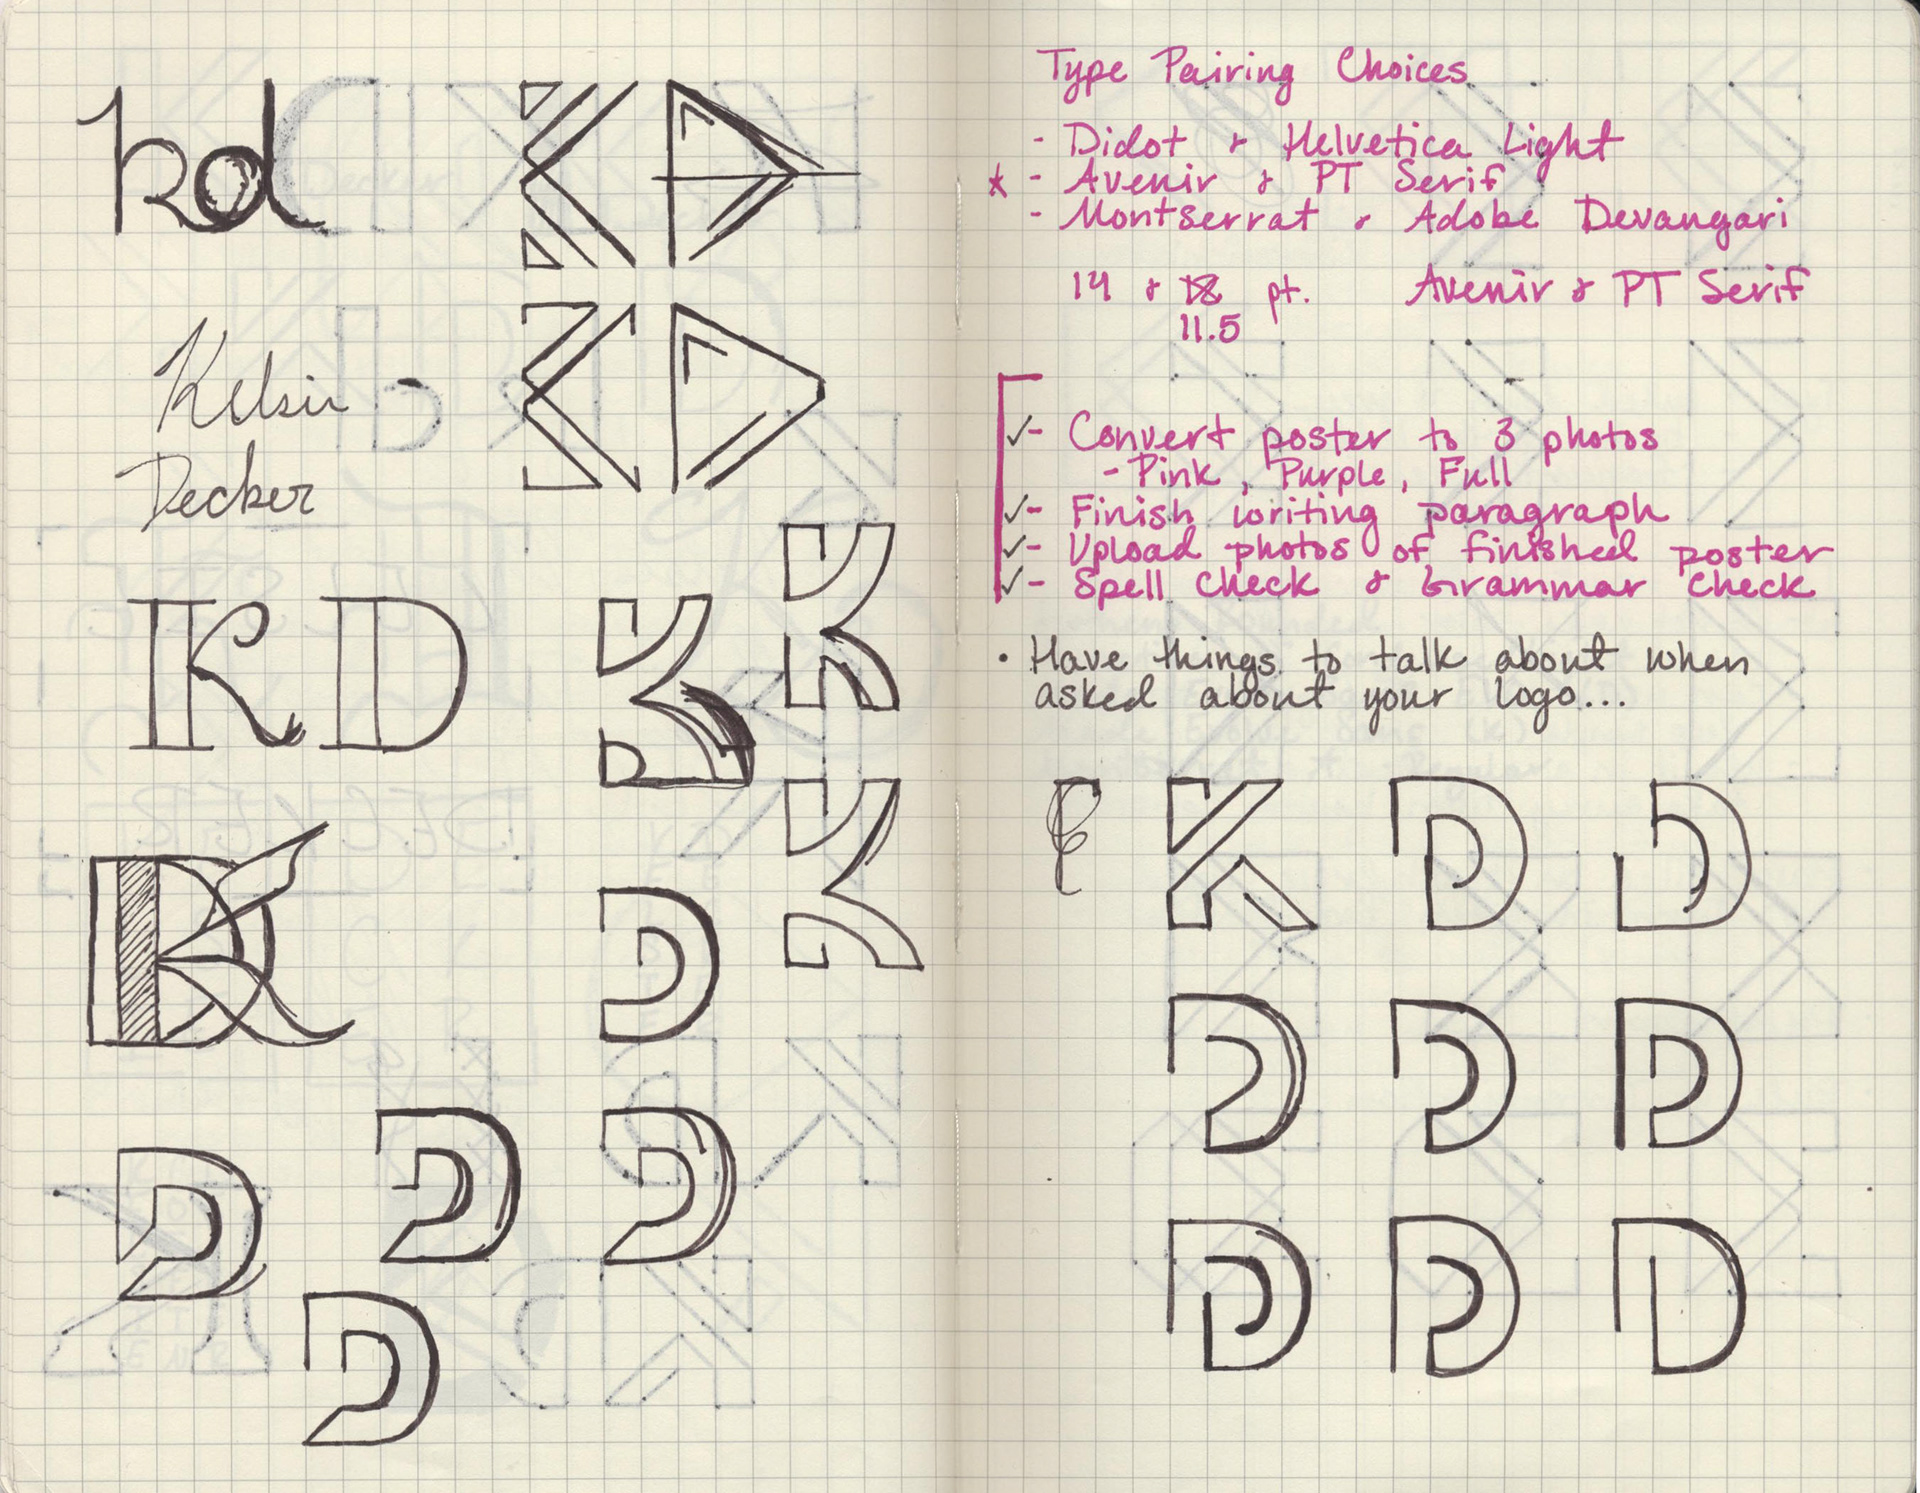 kd
KD
KD
Kelsie
Decker
KD
K
K
DK
K
D
D
D
D
D
Type Pairing Choices
- Didot & Helvetica Light
* - Avenir & PT Serif
- Montserrat & Adobe Devangari
14 & 18 pt. Avenir & PT Serif
11.5
✓- Convert poster to 3 photos
- Pink, Purple, Full
✓- Finish writing paragraph
✓- Upload photos of finished poster
✓- Spell Check & Grammar Check
• Have things to talk about when
asked about your logo...
K D D
D D D
D D D